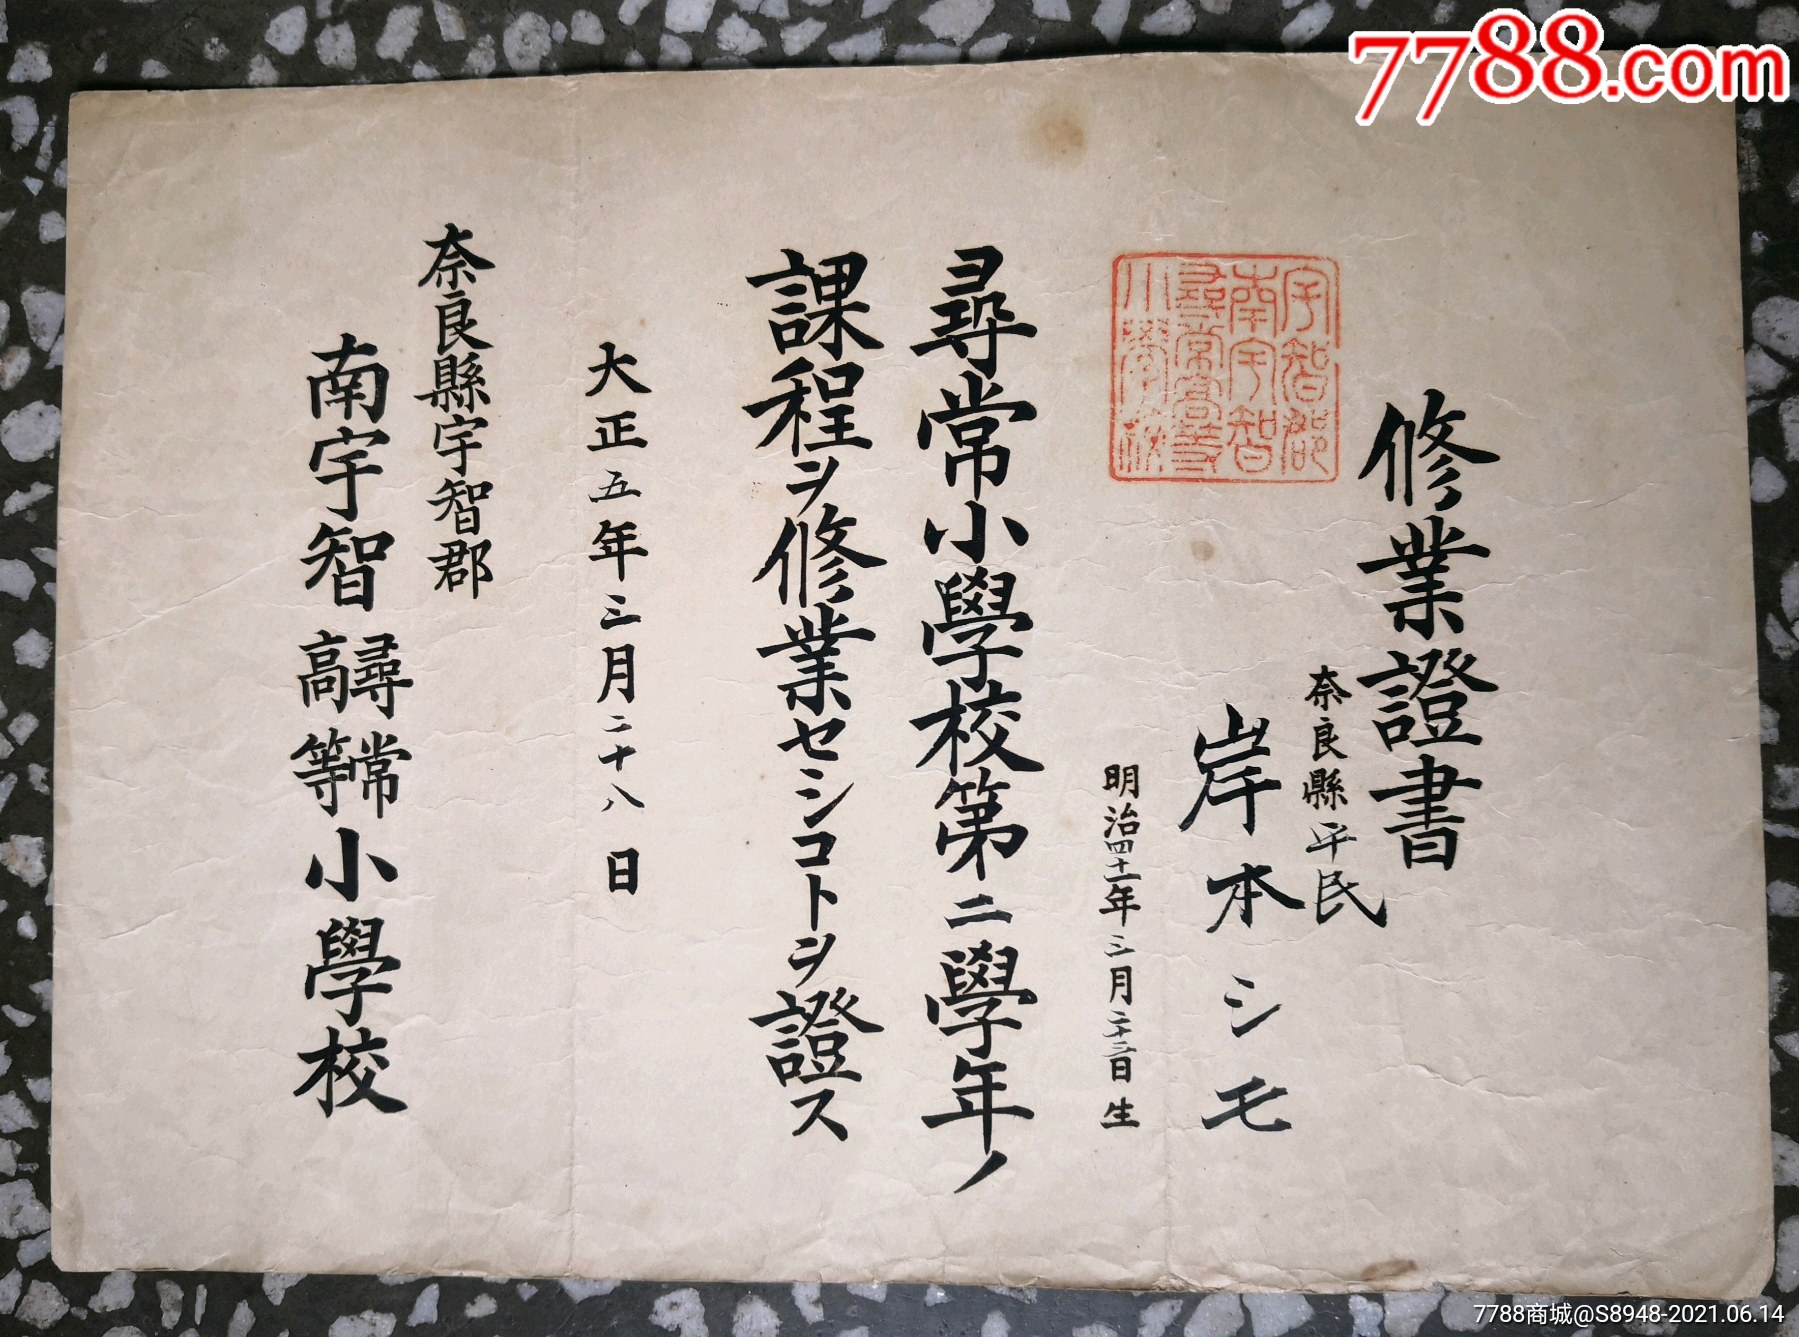 7788.com
修業證書
奈良縣平民
岸本シモ
明治四十一年三月二十三日生
宇智郡
南宇智
尋常高等
小學校
尋常小學校第二學年ノ
課程ヲ修業セシコトヲ證ス
大正五年三月二十八日
奈良縣宇智郡
南宇智尋常高等小學校
7788商城@S8948-2021.06.14